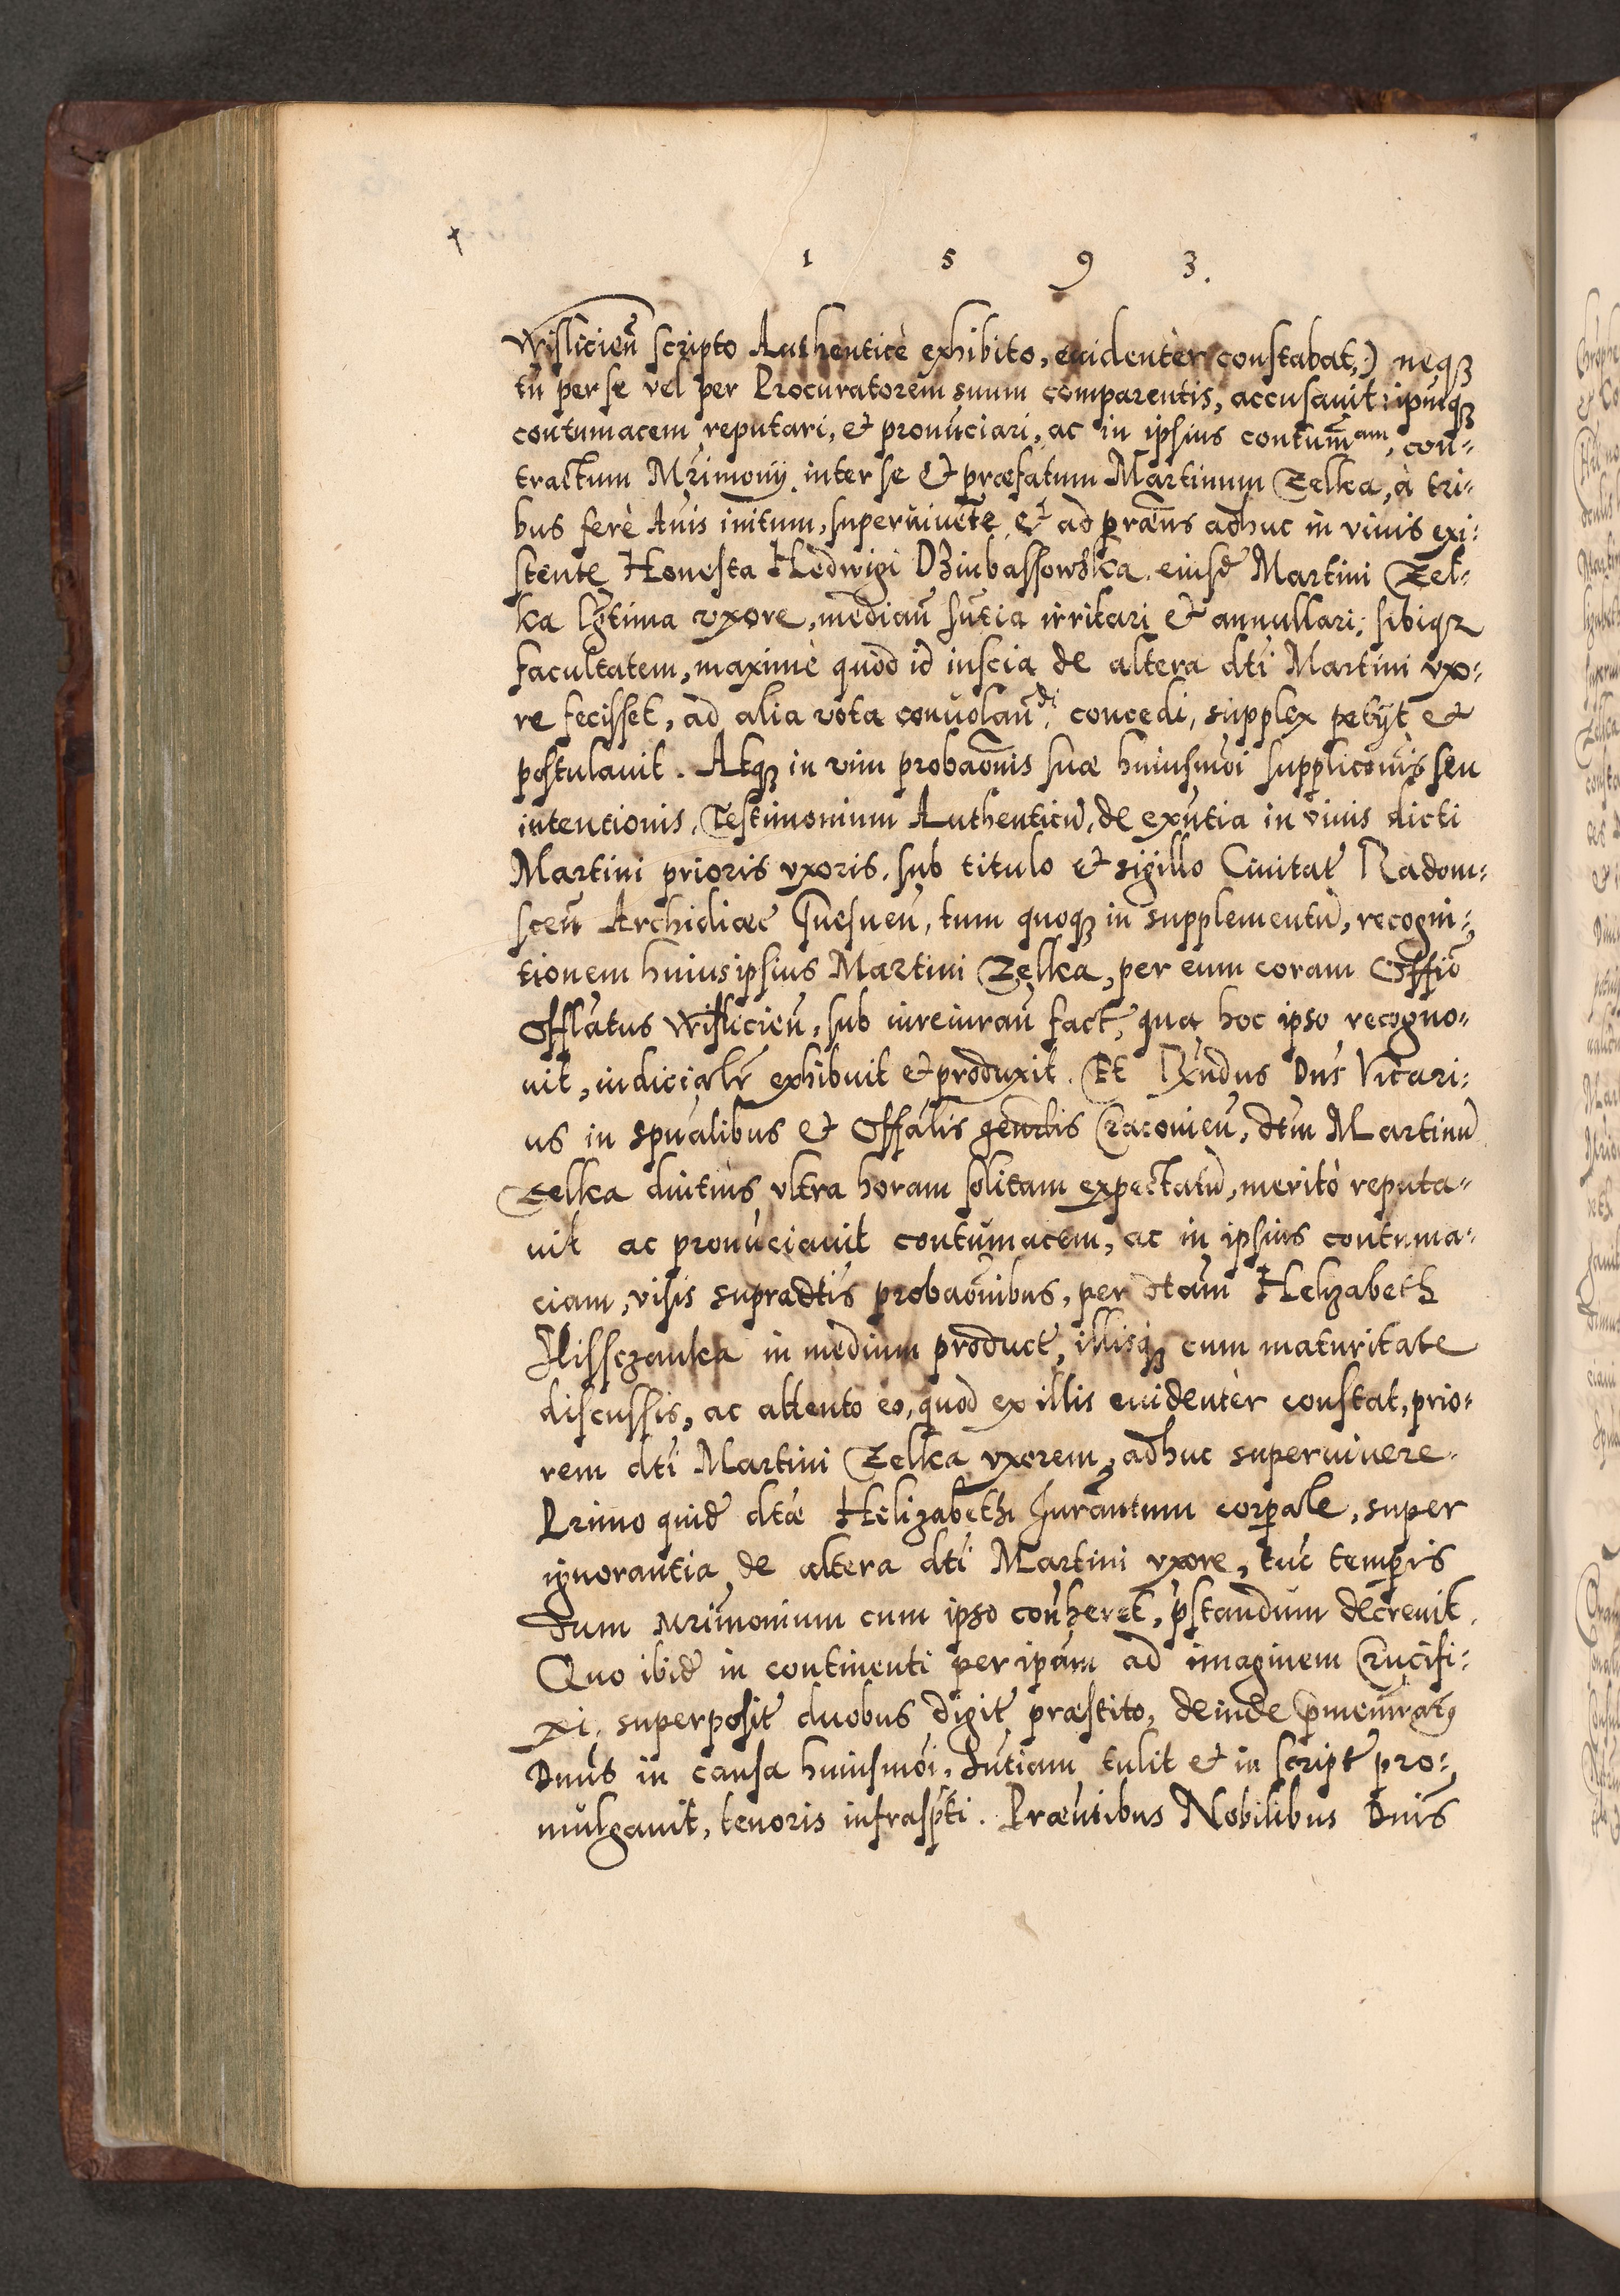 1 5 9 3.
Wislicien̄ scripto Authenticè exhibito, euidentèr constabat,) neqꝫ
tñ per se vel per Procuratorem suum comparentis, accusauit: ipm̄qꝫ
contumacem reputari, et pronūciari, ac in ipsius contum̄am, con-
tractum Mr̄imonij inter se et præfatum Martinum Zelka, à tri-
bus ferè Annis initum, superuiuētē et ad præn̄s adhuc in viuis exi-
stente Honesta Hedwigi Dziubassowska eiusd̄ Martini Zel-
ka lḡtima vxore, median̄ sn̄tia irritari et annullari, sibiqꝫ
facultatem, maximè quòd id inscia de altera dt̄i Martini vxo-
re fecisset, ad alia vota conuolan̄di, concedi, supplex petijt et
postulauit. Atqꝫ in vim probaōnis suæ huiusmōi suppliconis seu
intentionis, Testimonium Authenticū, de exn̄tia in viuis dicti
Martini prioris vxoris, sub titulo et sigillo Ciuitat̄ Radom-
scen̄ Archidiæc̄ Gnesnen̄, tum quoqꝫ in supplementū, recogni-
tionem huius ipsius Martini Zelka, per eum coram Offīo
Offlatus Wislicien̄, sub iureiuran̄ fact̄, qua hoc ipso recogno-
uit, iudicialr̄ exhibuit et produxit. Et Rn̄dus Dn̄s Vicari-
us in Spūalibus et Offālis gen̄rlis Cracouien̄, dt̄m Martinū
Zelka diutiùs vltra horam solitam expectatū, meritò reputa-
uit ac pronūciauit contumacem, ac in ipsius contuma-
ciam, visis supradt̄is probaōnibus, per dt̄am Helizabeth
Nissczanka in medium product̄, illisqꝫ cum maturitate
discussis, ac attento eo, quòd ex illis euidentèr constat, prio-
rem dt̄i Martini Zelka vxorem, adhuc superuiuere.
Primo quid̄ dt̄æ Helizabethi Jurān̄tum corp̄ale, super
ignorantia de altera dt̄i Martini vxore, tūc temp̄ris
dum Mr̄imonium cum ipso con̄heret, p̄standum decreuit.
Quo ibid̄ in continenti per ip̄am ad imaginem Crucifi-
xi, superposit̄ duobus digit̄ præstito, deinde p̄memratꝯ
Dn̄us in causa huiusmōi, Sn̄tiam tulit et in script̄ pro-
mulgauit, tenoris infrasp̄ti. Præn̄tibus Nobilibus Dn̄is